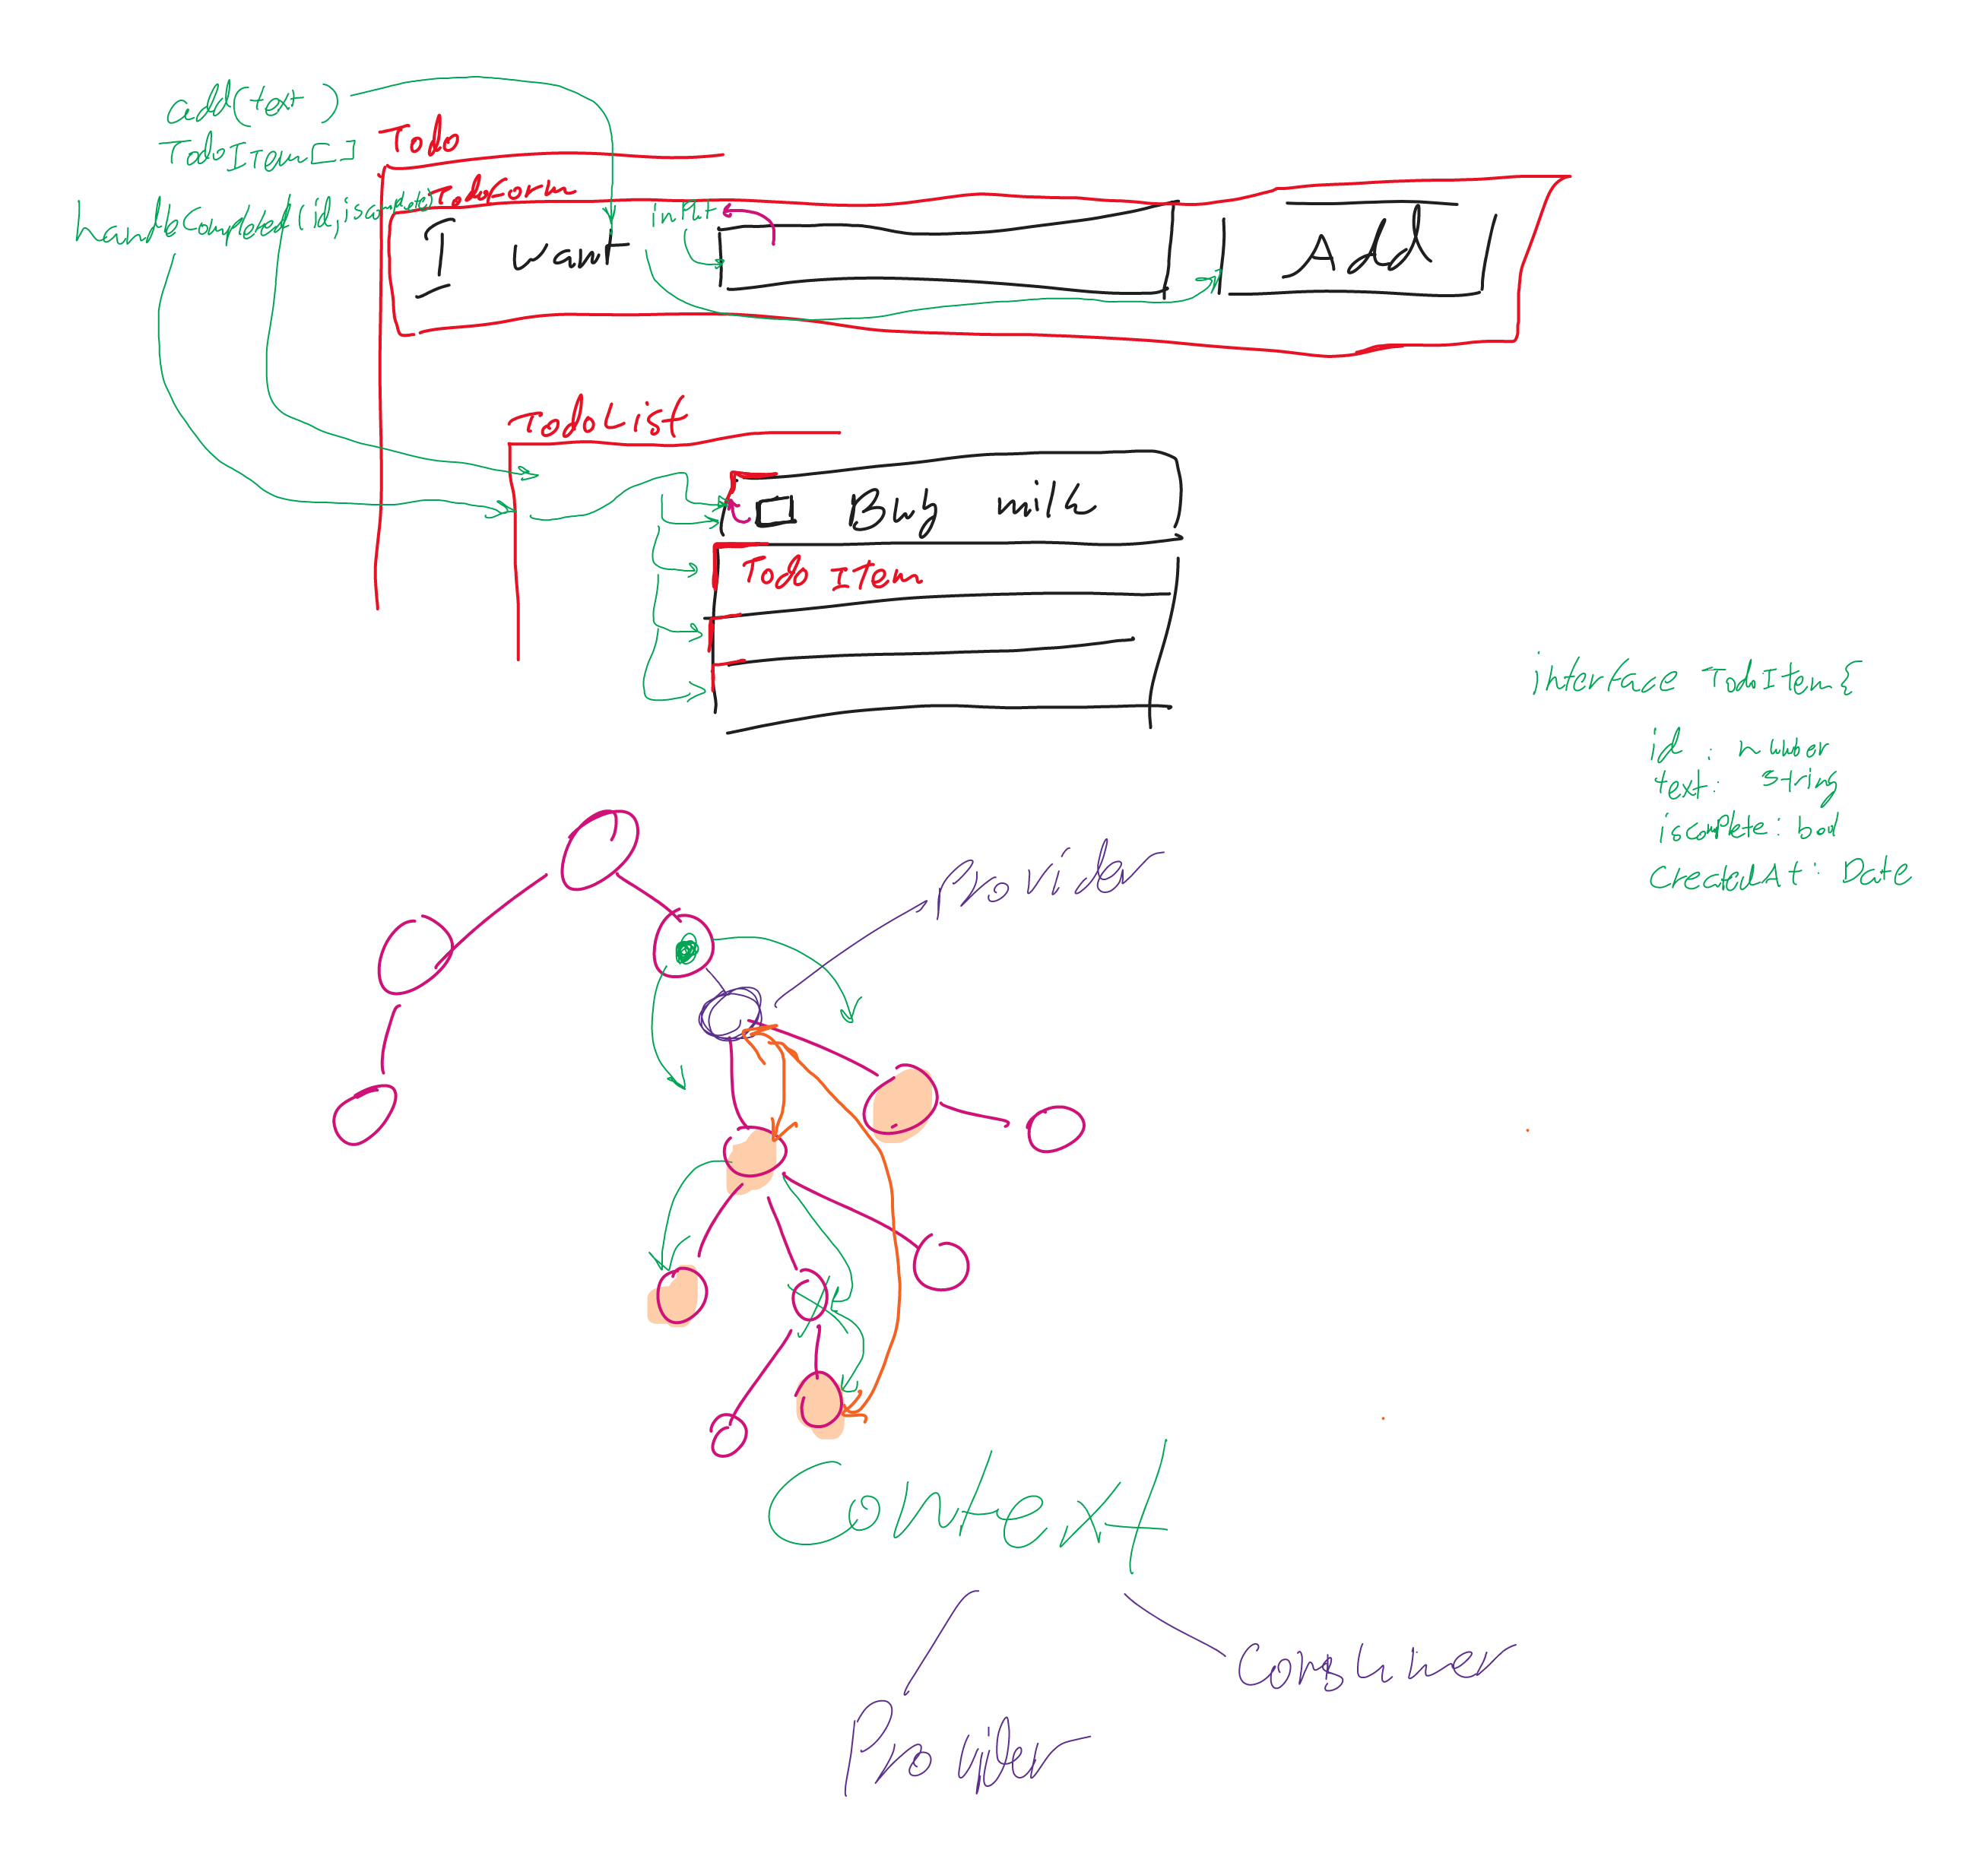 add(text)
TodoItem[]
Todo
handleCompleted(id, iscomplete)
TodoForm
input
I want
Add
TodoList
Buy milk
Todo Item
interface TodoItem{
id : number
text: string
iscomplete: bool
CreatedAt: Date
Provider
Context
Consumer
Provider